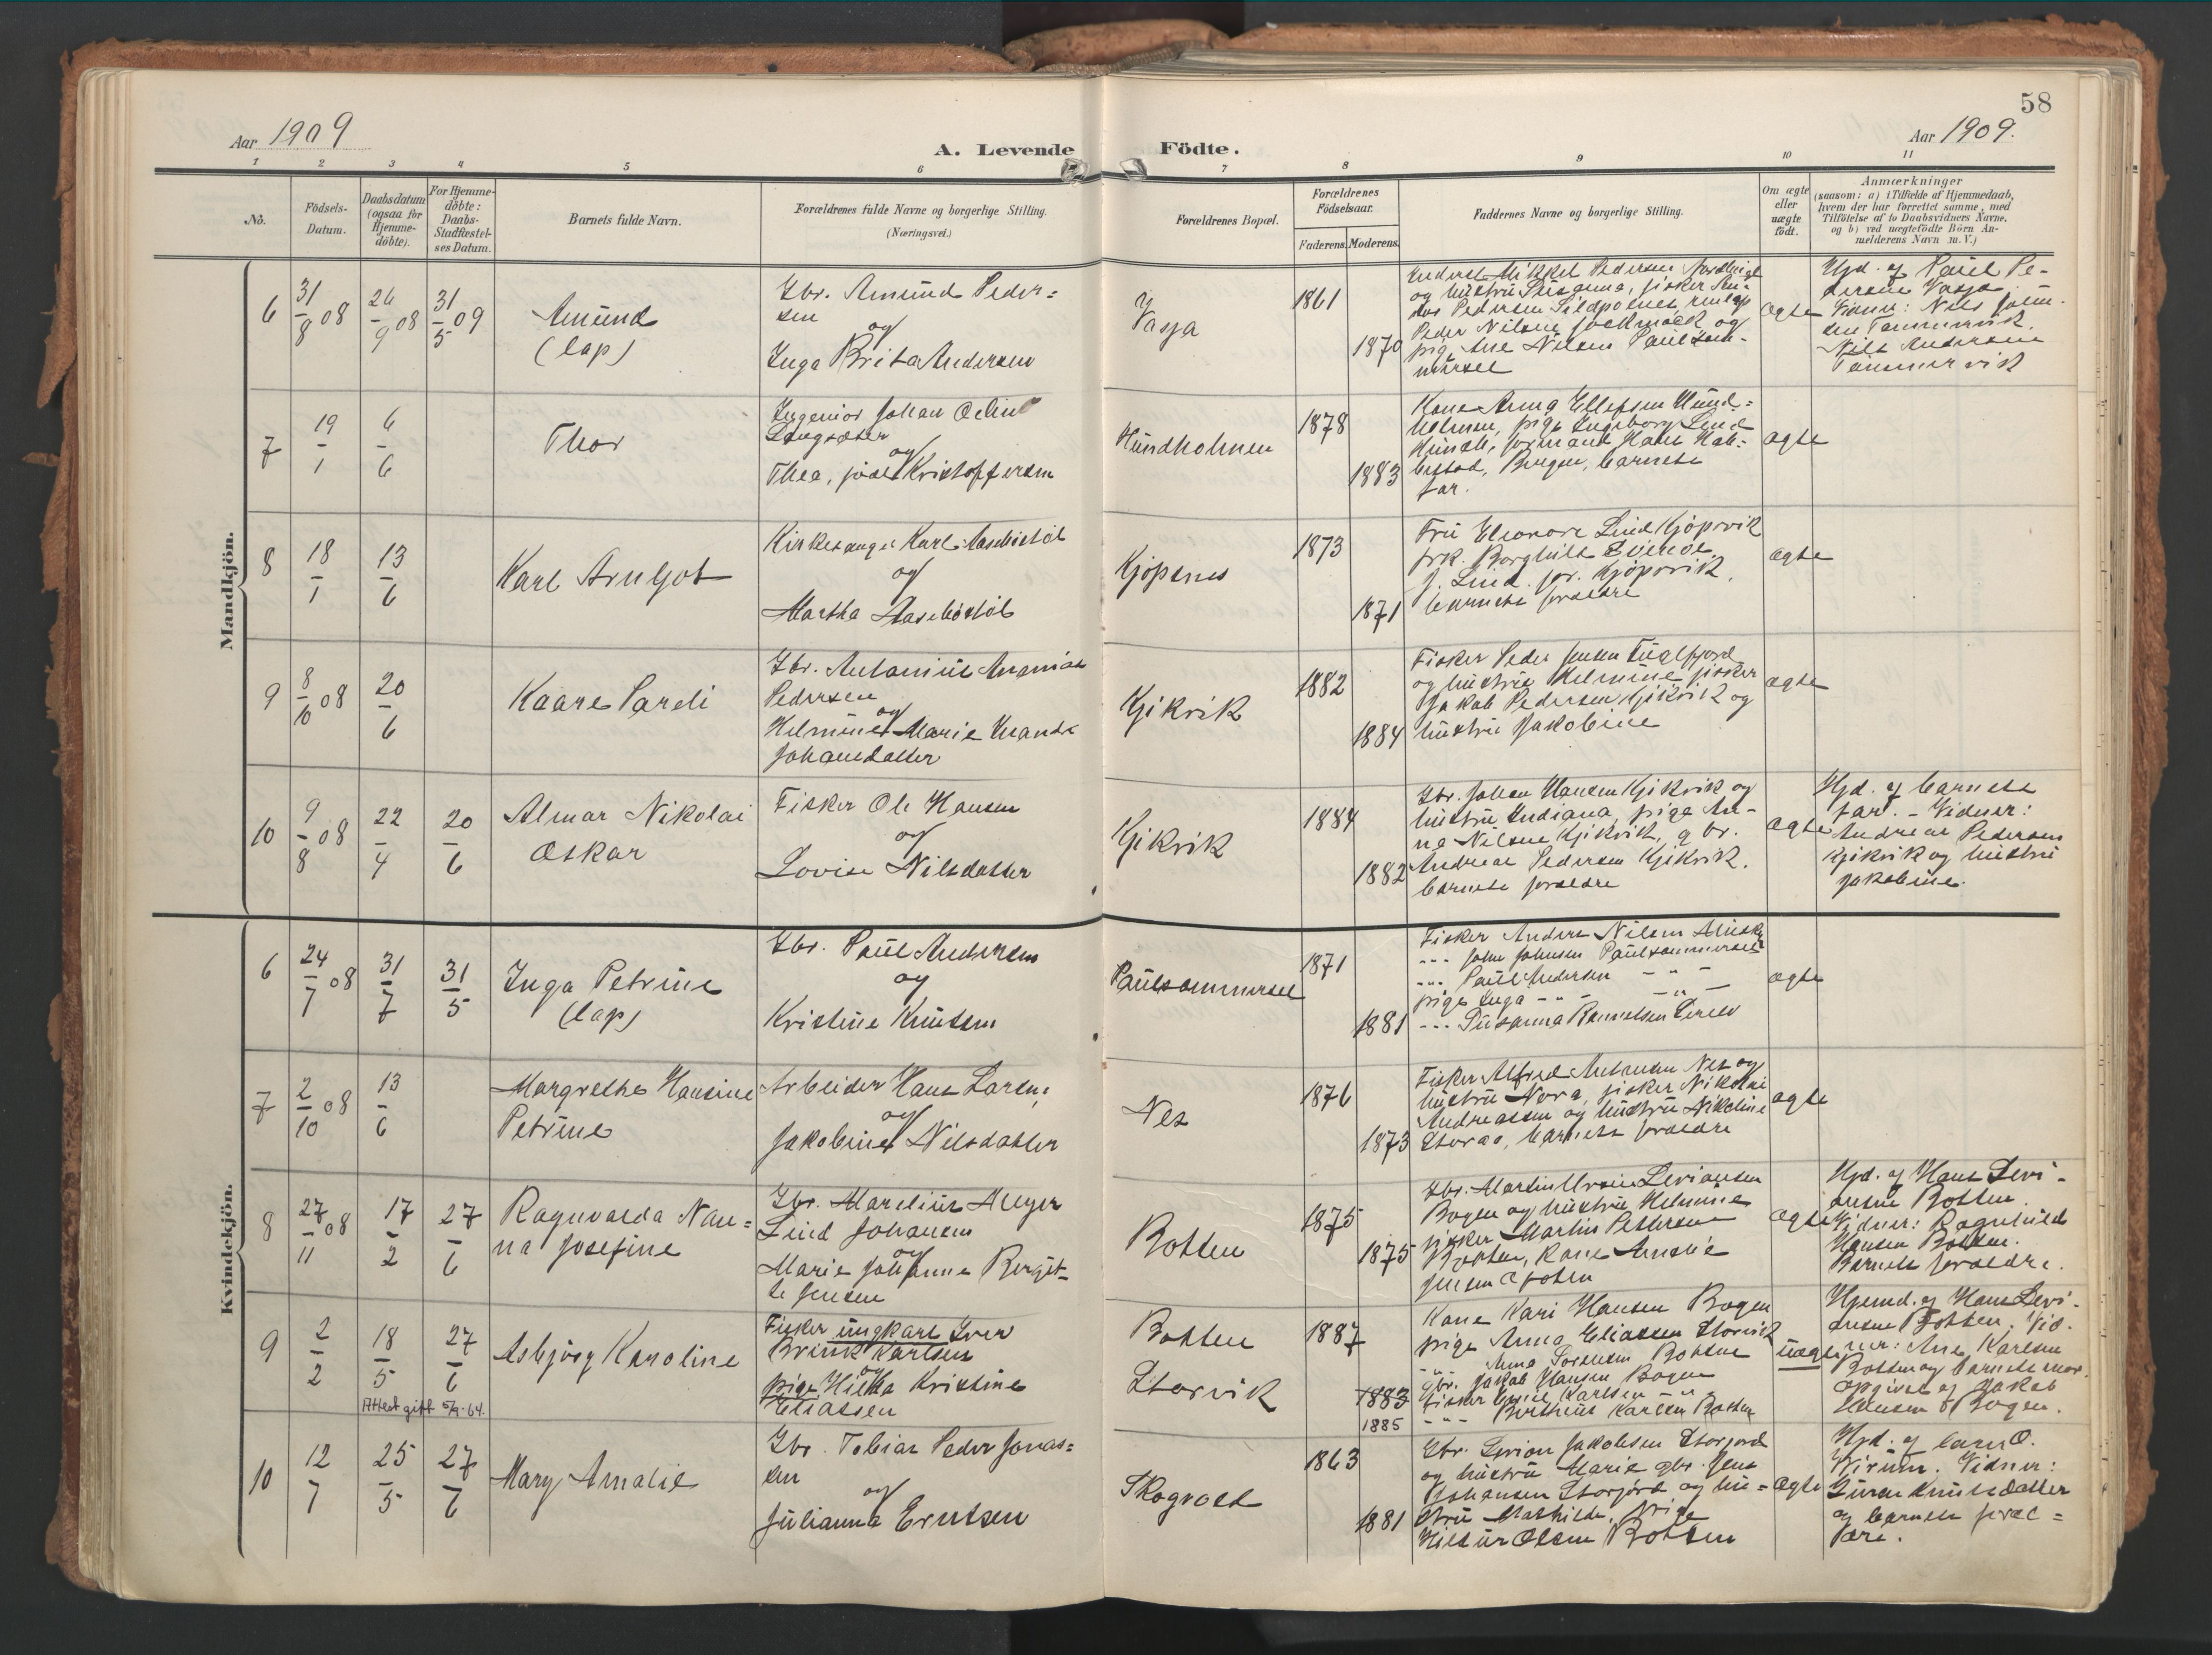 58
Aar 1909
A. Levende Födte.
Aar 1909.
1 2 3 4 5 6 7 8 9 10 11
No.
Födsels-
Datum.
Daabsdatum
(ogsaa for
Hjemme-
döbte).
For Hjemme-
döbte:
Daabs-
Stadfæstel-
ses Datum.
Barnets fulde Navn.
Forældrenes fulde Navne og borgerlige Stilling.
(Næringsvei.)
Forældrenes Bopæl.
Forældrenes
Födselsaar.
Faderens. Moderens.
Faddernes Navne og borgerlige Stilling.
Om ægte
eller
uægte
födt.
Anmærkninger
(saasom: a) i Tilfælde af Hjemmedaab,
hvem der har forrettet samme, med
Tilföielse af to Daabsvidners Navne,
og b) ved uægtefödte Börn An-
melderens Navn m. V.)
Mandkjön.
6
31/8 08
26/9 08
31/5 09
Amund
(lap)
Gbr. Amund Peder=
sen
og
Inga Brita Andersen
Vasja
1861
1870
og hustru Susanna, fisker
Peder Nilsen Jockmock og
pige Ane Nilsen Paulsom-
mersel
ægte
Hjd. af Paul Pe-
dersen Vasja.
Vidner: Nils John-
sen Tømmervik.
Nils Andersen
Tømmervik
7
19/1
6/6
Thor
Ingeniør Johan Odin
Langsæter
og
Thea, født Kristoffersen
Hundholmen
1878
1883
Kone Anna Ellefsen Hund=
holmen, pige Ingeborg Lind
Hundh., formand Hans
Bergen, barnets
far.
ægte
8
18/1
13/6
Karl Arnljot
Kirkesanger Karl Aasebøstøl
og
Martha Aasebøstøl
Kjøpsnes
1873
1871
Fru Eleonore Lind Kjøpsvik
frk. Borghild
J. Lind. for. Kjøpsvik.
barnets forældre
ægte
9
8/10 08
20/6
Kaare Pareli
Gbr. Antonius Ananias
Pedersen
og
Helmine Marie
Johansdatter
Kjikvik
1882
1884
Fisker Peder Jensen Fuglfjord
og hustru Helmine, fisker
Jakob Pedersen Kjikvik og
hustru Jakobine
ægte
10
9/8 08
22/4
20/6
Almar Nikolai
Oskar
Fisker Ole Hansen
og
Lovise Nilsdatter
Kjikvik
1884
1882
Gbr. Johan Hansen Kjikvik og
hustru Indiana, pige An-
na Nilsen Kjikvik, gbr.
Andreas Pedersen Kjikvik.
barnets forældre
ægte
Hjd. af barnets
far. - Vidner:
Andreas Pedersen
Kjikvik og hustru
Jakobine.
Kvindekjön.
6
24/7 08
31/7
31/5
Inga Petrine
(lap)
Gbr. Paul Andersen
og
Kristine Knutsen
Paulsommersel
1871
1881
Fisker Anders Nilsen
--- John Johnsen Paulsommersel
--- Paul Andersen - " -
pige Inga - " - - " -
--- Susanna
ægte
7
2/10 08
13/6
Margrethe Hansine
Petrine
Arbeider Hans Larsen
og
Jakobine Nilsdatter
Nes
1876
1873
Fisker Alfred Antonsen Nes og
hustru Nora, fisker Nikolai
Andreassen og hustru Nikoline
Storaa, barnets forældre
ægte
8
27/11 08
17/2
27/6
Ragnvalda Nan=
na Josefine
Gbr. Marelius Meyer
Lind Johansen
og
Marie Johanne Bergit-
te Jensen
Botten
1875
1875
Gbr. Martin Levi­ansen
Bogen og hustru Helmine
fisker Martin Pettersen
Botten, kone Amalie
Jensen Botten
ægte
Hjd. af Hans Levi-
ansen Botten.
Vidner: Ragnhild
Hansen Botten.
Barnets forældre.
9
2/2
18/5
27/6
Attest gift 5/9-64.
Asbjørg Karoline
Fisker ungkarl Iver
Brink Karlsen
og
pige Hilda Kristine
Eliassen
Botten
Storvik
1887
1883
1885
Kone Kari Hansen Bogen
pige Anna Eliassen Storvik
--- Anna Sørensen Botten
gbr. Jakob Hansen Bogen
fisker Emil Karlsen - " -
--- Bertheus Karlsen Botten
uægte
Hjemd. af Hans Levi-
ansen Botten. Vid-
ner: Ane Karlsen
Botten og barnets mor.
opgivet af Jakob
Hansen Bogen.
10
12/7
25/5
27/6
Mary Amalie
Gbr. Tobias Peder Jonas=
sen
og
Julianna Erntsen
Skogvold
1863
1881
Gbr. Levion Jakobsen Storjord
og hustru Marie gbr. Jens
Johansen Storjord og hu=
stru Mathilde, pige
Hildur Olsen Botten
ægte
Hjd. af barn O.
Vidner:
Knutsdatter
og barnets foræl=
dre.